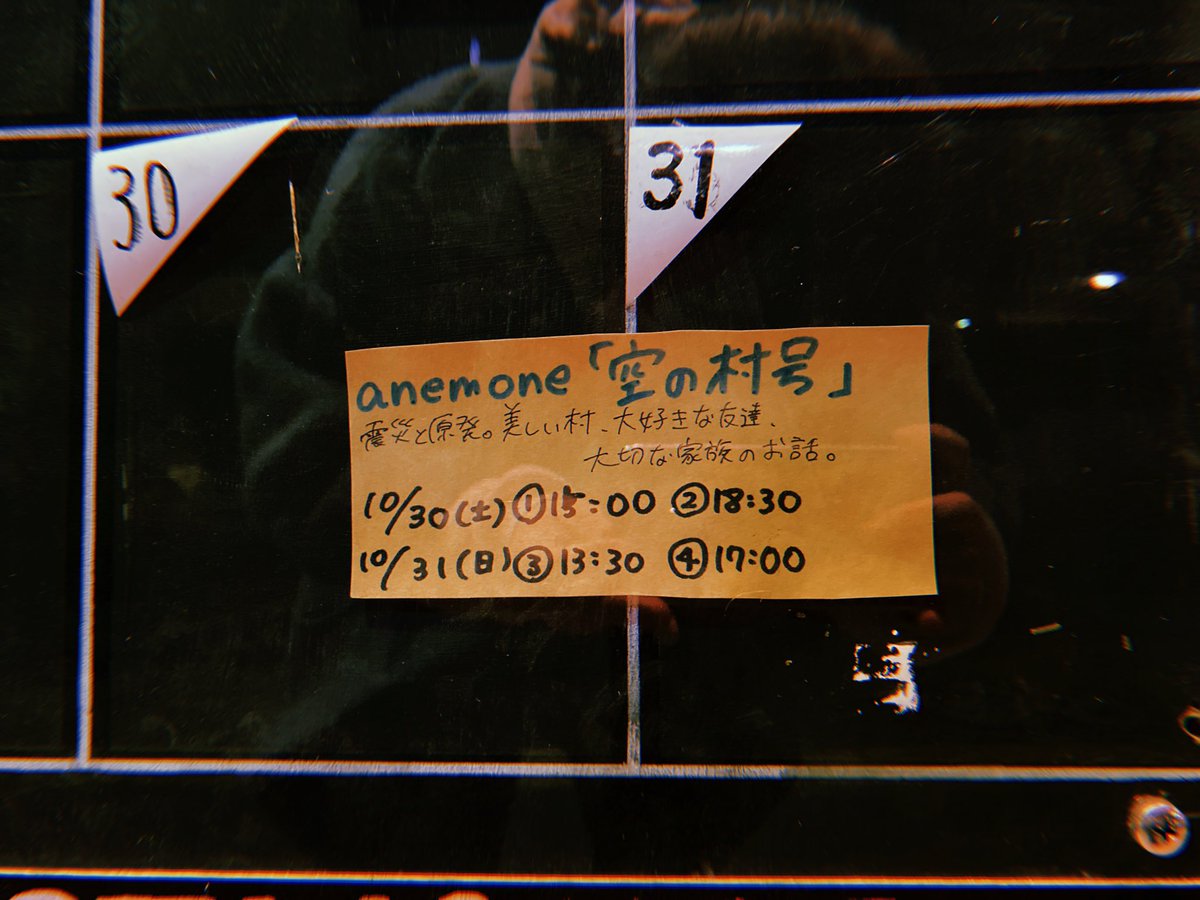 30
31
anemone「空の村号」
震災と原発。美しい村、大好きな友達、
大切な家族のお話。
10/30(土)①15:00 ②18:30
10/31(日)③13:30 ④17:00